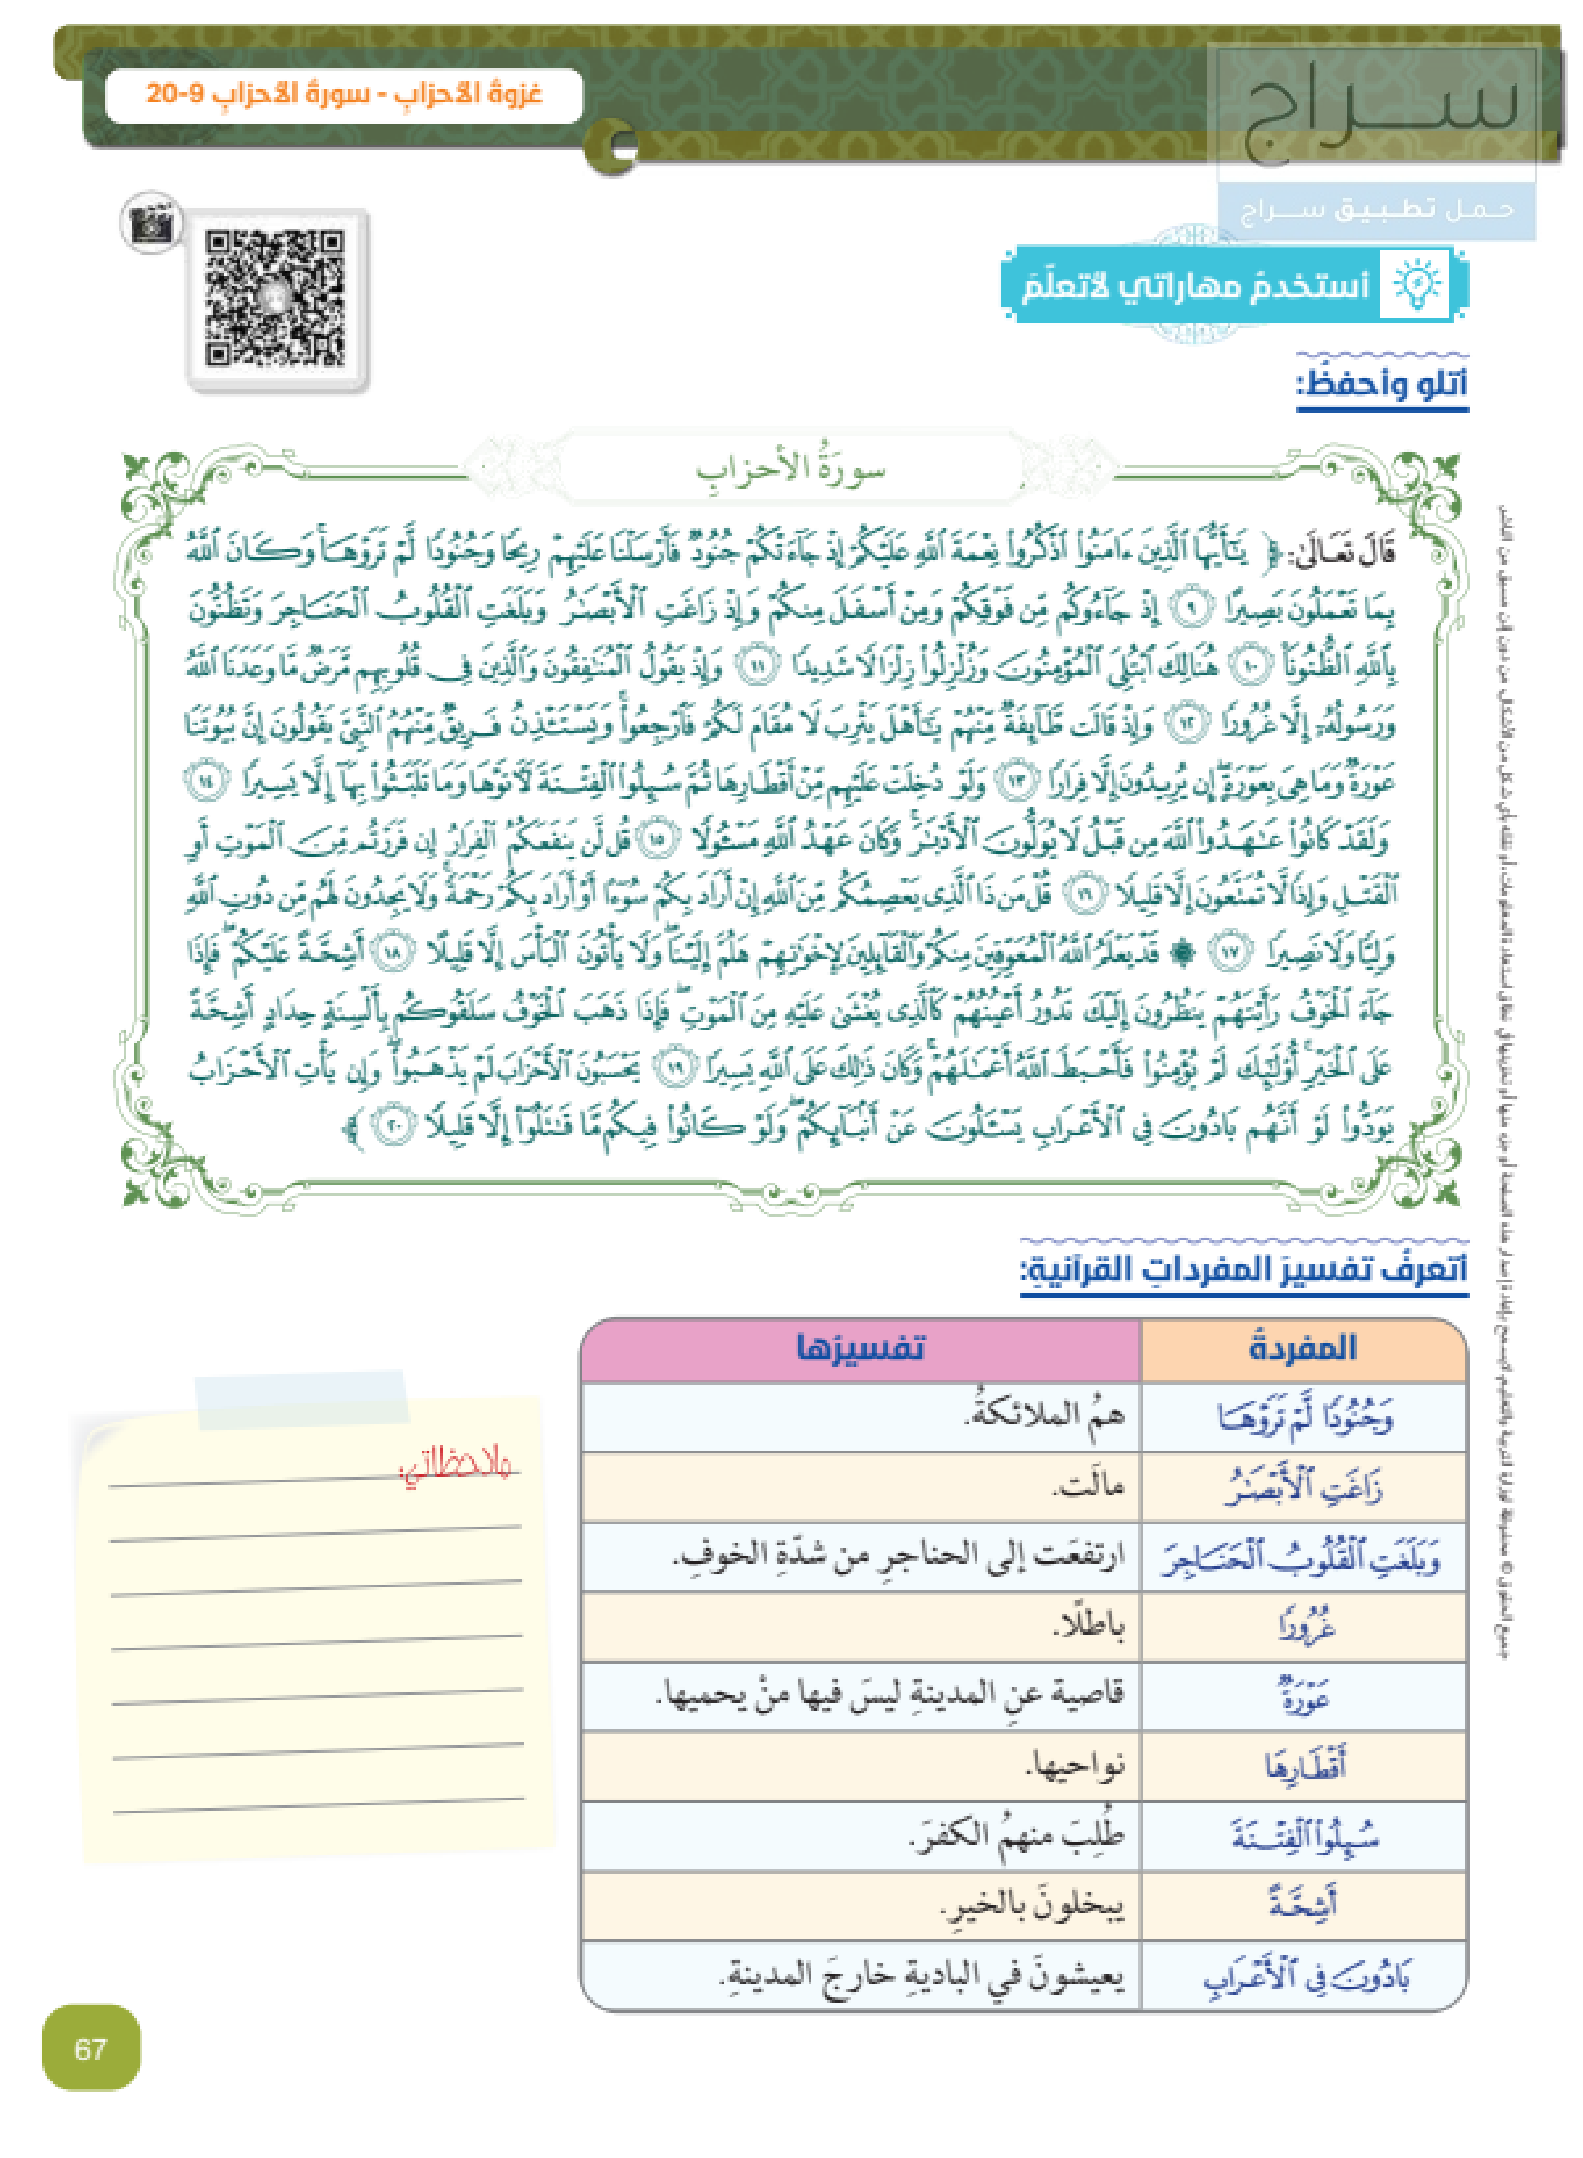 سراج
حمل تطبيق سراج
غزوةُ الأحزابِ - سورةُ الأحزابِ 9-20
أستخدمُ مهاراتي لأتعلّمَ
أتلو وأحفظُ:
سورَةُ الأحزابِ
قَالَ تَعَالَىٰ: ﴿ يَٰٓأَيُّهَا ٱلَّذِينَ ءَامَنُواْ ٱذۡكُرُواْ نِعۡمَةَ ٱللَّهِ عَلَيۡكُمۡ إِذۡ جَآءَتۡكُمۡ جُنُودٞ فَأَرۡسَلۡنَا عَلَيۡهِمۡ رِيحٗا وَجُنُودٗا لَّمۡ تَرَوۡهَاۚ وَكَانَ ٱللَّهُ
بِمَا تَعۡمَلُونَ بَصِيرًا ٩ إِذۡ جَآءُوكُم مِّن فَوۡقِكُمۡ وَمِنۡ أَسۡفَلَ مِنكُمۡ وَإِذۡ زَاغَتِ ٱلۡأَبۡصَٰرُ وَبَلَغَتِ ٱلۡقُلُوبُ ٱلۡحَنَاجِرَ وَتَظُنُّونَ
بِٱللَّهِ ٱلظُّنُونَا۠ ١٠ هُنَالِكَ ٱبۡتُلِيَ ٱلۡمُؤۡمِنُونَ وَزُلۡزِلُواْ زِلۡزَالٗا شَدِيدٗا ١١ وَإِذۡ يَقُولُ ٱلۡمُنَٰفِقُونَ وَٱلَّذِينَ فِي قُلُوبِهِم مَّرَضٞ مَّا وَعَدَنَا ٱللَّهُ
وَرَسُولُهُۥٓ إِلَّا غُرُورٗا ١٢ وَإِذۡ قَالَت طَّآئِفَةٞ مِّنۡهُمۡ يَٰٓأَهۡلَ يَثۡرِبَ لَا مُقَامَ لَكُمۡ فَٱرۡجِعُواْۚ وَيَسۡتَـٔۡذِنُ فَرِيقٞ مِّنۡهُمُ ٱلنَّبِيَّ يَقُولُونَ إِنَّ بُيُوتَنَا
عَوۡرَةٞ وَمَا هِيَ بِعَوۡرَةٍۖ إِن يُرِيدُونَ إِلَّا فِرَارٗا ١٣ وَلَوۡ دُخِلَتۡ عَلَيۡهِم مِّنۡ أَقۡطَارِهَا ثُمَّ سُئِلُواْ ٱلۡفِتۡنَةَ لَأٓتَوۡهَا وَمَا تَلَبَّثُواْ بِهَآ إِلَّا يَسِيرٗا ١٤
وَلَقَدۡ كَانُواْ عَٰهَدُواْ ٱللَّهَ مِن قَبۡلُ لَا يُوَلُّونَ ٱلۡأَدۡبَٰرَۚ وَكَانَ عَهۡدُ ٱللَّهِ مَسۡـُٔولٗا ١٥ قُل لَّن يَنفَعَكُمُ ٱلۡفِرَارُ إِن فَرَرۡتُم مِّنَ ٱلۡمَوۡتِ أَوِ
ٱلۡقَتۡلِ وَإِذٗا لَّا تُمَتَّعُونَ إِلَّا قَلِيلٗا ١٦ قُلۡ مَن ذَا ٱلَّذِي يَعۡصِمُكُم مِّنَ ٱللَّهِ إِنۡ أَرَادَ بِكُمۡ سُوٓءًا أَوۡ أَرَادَ بِكُمۡ رَحۡمَةٗۚ وَلَا يَجِدُونَ لَهُم مِّن دُونِ ٱللَّهِ
وَلِيّٗا وَلَا نَصِيرٗا ١٧ ۞ قَدۡ يَعۡلَمُ ٱللَّهُ ٱلۡمُعَوِّقِينَ مِنكُمۡ وَٱلۡقَآئِلِينَ لِإِخۡوَٰنِهِمۡ هَلُمَّ إِلَيۡنَاۖ وَلَا يَأۡتُونَ ٱلۡبَأۡسَ إِلَّا قَلِيلًا ١٨ أَشِحَّةً عَلَيۡكُمۡۖ فَإِذَا
جَآءَ ٱلۡخَوۡفُ رَأَيۡتَهُمۡ يَنظُرُونَ إِلَيۡكَ تَدُورُ أَعۡيُنُهُمۡ كَٱلَّذِي يُغۡشَىٰ عَلَيۡهِ مِنَ ٱلۡمَوۡتِۖ فَإِذَا ذَهَبَ ٱلۡخَوۡفُ سَلَقُوكُم بِأَلۡسِنَةٍ حِدَادٍ أَشِحَّةً
عَلَى ٱلۡخَيۡرِۚ أُوْلَٰٓئِكَ لَمۡ يُؤۡمِنُواْ فَأَحۡبَطَ ٱللَّهُ أَعۡمَٰلَهُمۡۚ وَكَانَ ذَٰلِكَ عَلَى ٱللَّهِ يَسِيرٗا ١٩ يَحۡسَبُونَ ٱلۡأَحۡزَابَ لَمۡ يَذۡهَبُواْۖ وَإِن يَأۡتِ ٱلۡأَحۡزَابُ
يَوَدُّواْ لَوۡ أَنَّهُم بَادُونَ فِي ٱلۡأَعۡرَابِ يَسۡـَٔلُونَ عَنۡ أَنۢبَآئِكُمۡۖ وَلَوۡ كَانُواْ فِيكُم مَّا قَٰتَلُوٓاْ إِلَّا قَلِيلٗا ٢٠ ﴾
أتعرفُ تفسيرَ المفرداتِ القرآنيةِ:
المفردةُ تفسيرُها
وَجُنُودٗا لَّمۡ تَرَوۡهَا همُ الملائكةُ.
زَاغَتِ ٱلۡأَبۡصَٰرُ مالَت.
وَبَلَغَتِ ٱلۡقُلُوبُ ٱلۡحَنَاجِرَ ارتفعَت إلى الحناجرِ من شدّةِ الخوفِ.
غُرُورٗا باطلًا.
عَوۡرَةٞ قاصية عنِ المدينةِ ليسَ فيها منْ يحميها.
أَقۡطَارِهَا نواحيها.
سُئِلُواْ ٱلۡفِتۡنَةَ طُلِبَ منهمُ الكفرَ.
أَشِحَّةً يبخلونَ بالخيرِ.
بَادُونَ فِي ٱلۡأَعۡرَابِ يعيشونَ في الباديةِ خارجَ المدينةِ.
ملاحظاتي:
67